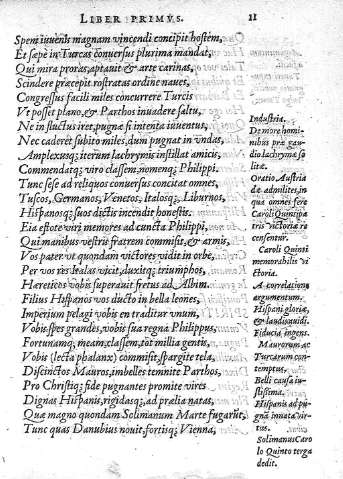 LIBER PRIMVS. 11
Spem iuvenis magnam vincendi concipit hostem,
Et sæpè in Turcas conuersus plurima mandat,
Qui mira proras, aptauit & arte carinas,
Scindere præcepit rostratas ordine naues,
Congressus facili miles concurrere Turcis
Vt posset plano, & Parthos inuadere saltu,
Ne in fluctus iret, pugnæ si intenta iuuentus,
Nec caderet subito miles, dum pugnat in vndas,
Amplexusq; iterum lachrymis instillat amicis,
Commendatq; viro classem, nomenq; Philippi.
Tunc sese ad reliquos conuersus concitat omnes,
Tuscos, Germanos, Venetos, Italosq;, Liburnos,
Hispanosq; suos dictis incendit honestis.
Eia este viri memores ad cuncta Philippi,
Qui manibus vestris fratrem commisit, & armis,
Vos pater vt quondam victores vidit in orbe,
Per vos res Italas vicit, duxitq; triumphos,
Hæreticos vobis superauit fretus ad Albim.
Filius Hispanos vos ducto in bella leones,
Imperium pelagi vobis en traditur vnum,
Vobis spes grandes, vobis sua regna Philippus,
Fortunamq; meam, classem, tot millia gentis,
Vobis (lecta phalanx) commisit, spargite tela,
Discinctos Mauros, imbelles temnite Parthos,
Pro Christiq; fide pugnantes promite vires
Dignas Hispanis, rigidasq; ad prælia natas,
Qua magno quondam Solimanum Marte fugarūt,
Tunc quas Danubius nouit, fortisq; Vienna,
Industria.
De more homi-
nibus præ gau-
dio lachrymæ so
litæ.
Oratio Austria
dæ ad milites, in
qua omnes ferè
Caroli Quinti pa
tris victoriæ re
censentur.
Caroli Quinti
memorabilis vi
ctoria.
A correlatione
argumentum.
Hispani gloriæ,
& laudis cupidi.
Fiducia ingens.
Maurorum ac
Turcarum con-
temptus.
Belli causa iu-
stissima.
Hispanis ad pu-
gnā innata vir-
tus.
Solimanus Caro
lo Quinto terga
dedit.